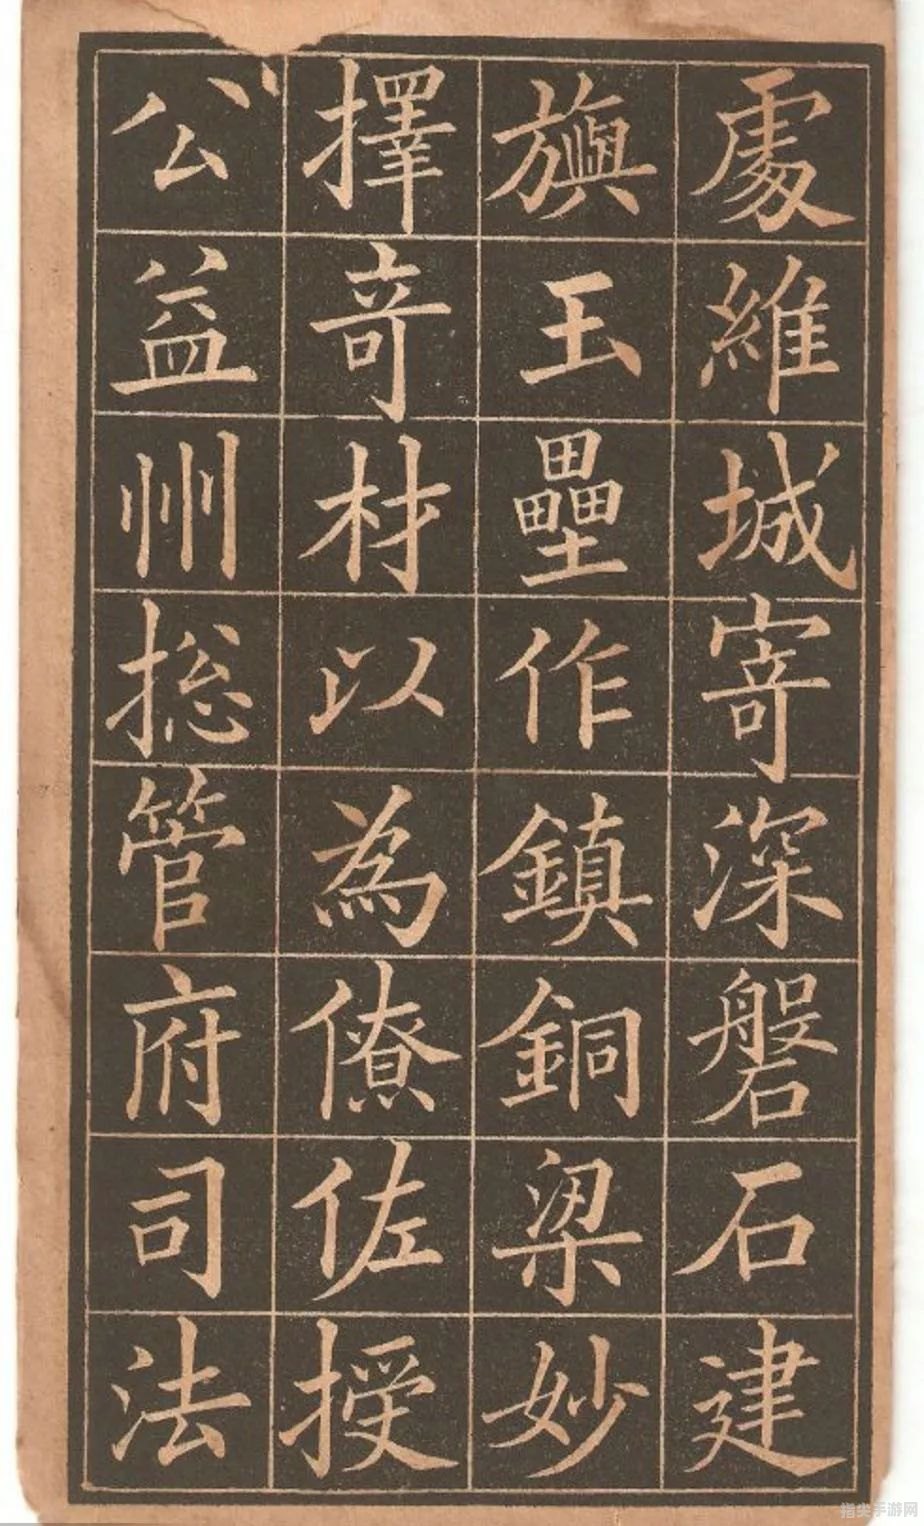 處維城寄深磐石建
旟玉壘作鎮銅梁妙
擇竒材以為僚佐授
公益州捴管府司法
指尖手游网